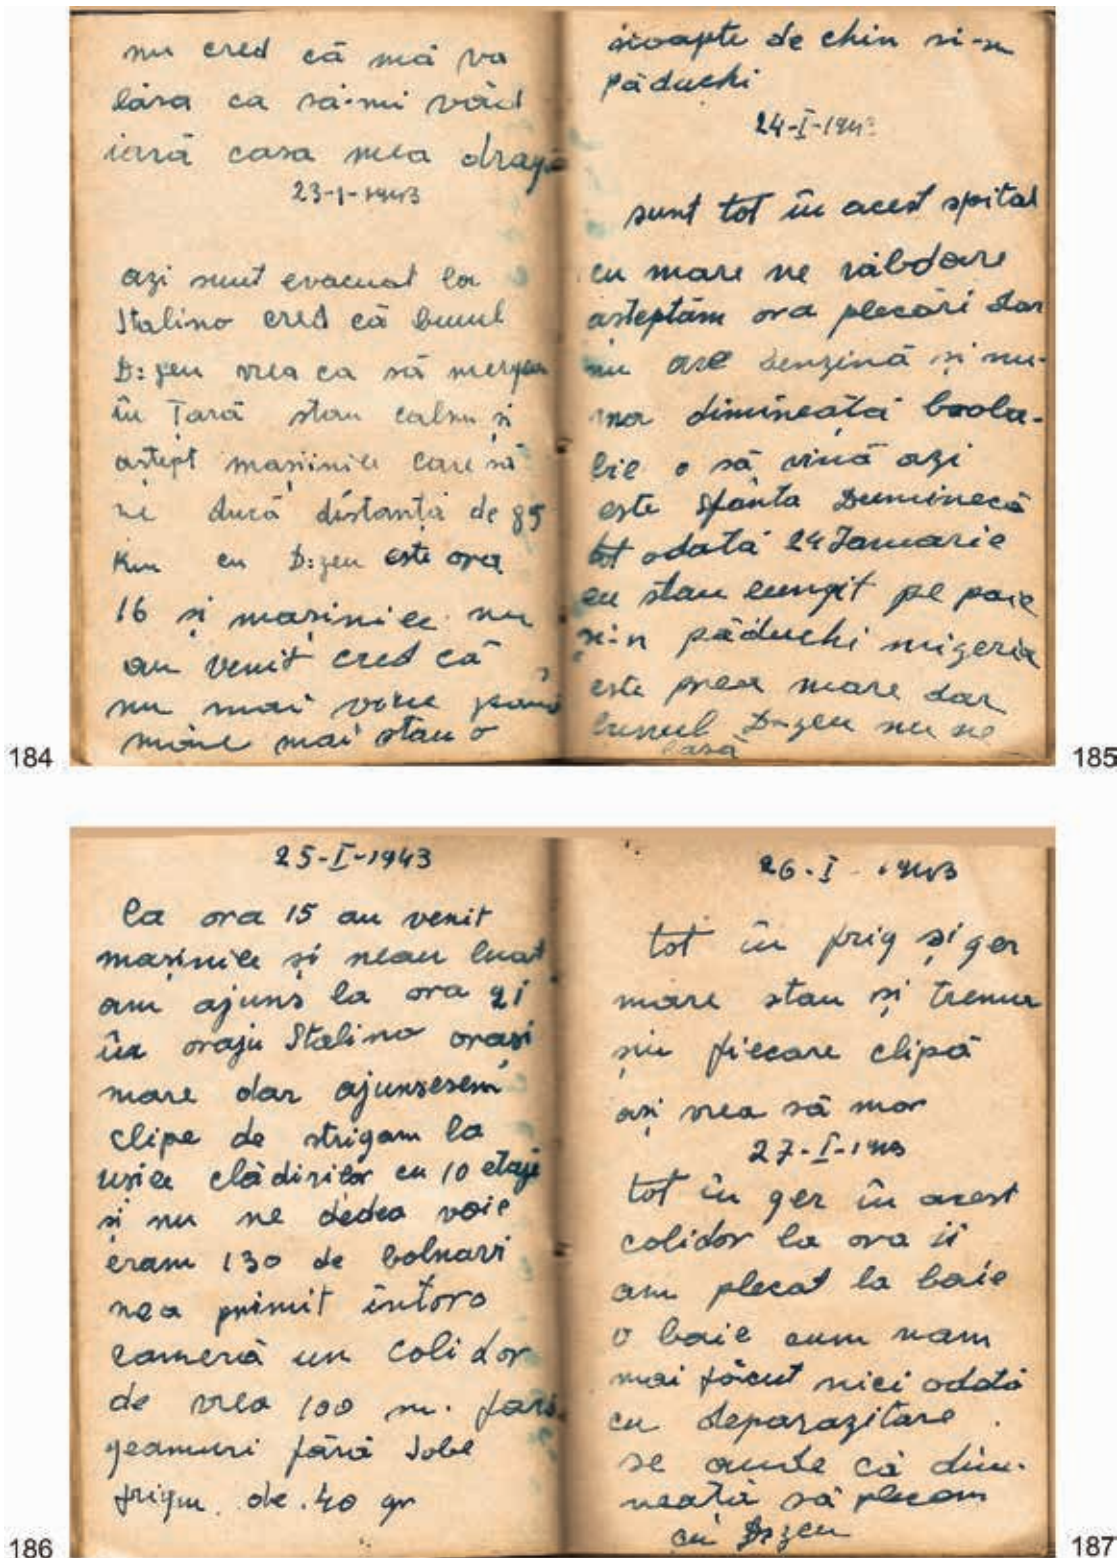 nu cred că mă va
lăsa ca să-mi văd
iară casa mea dragă
23-1-1943
azi sunt evacuat la
Stalino cred că bunul
D:zeu vrea ca să mergem
în Țară stau calm și
aștept mașinile care să
ne ducă distanța de 85
Km cu D:zeu este ora
16 și mașinile nu
au venit cred că
nu mai vine până
mâine mai stau o
184
noapte de chin si-n
păduchi
24-I-1943
sunt tot în acest spital
cu mare ne răbdare
așteptăm ora plecări dar
nu are benzină și nu-
ma dimineață
o să vină azi
este Sfânta Duminecă
tot odată 24 Januarie
eu stau lungit pe paie
și-n păduchi mizeria
este prea mare dar
bunul D-zeu nu ne
lasă
185
25-I-1943
la ora 15 au venit
mașinile și neau luat
am ajuns la ora 21
în orașu Stalino orași
mare dar ajunsesem
clipe de strigam la
ușile clădirilor cu 10 etaje
și nu ne dedea voie
eram 130 de bolnavi
nea primit întoro
cameră un colidor
de vreo 100 m. fără
geamuri fără sobe
frigu de 40 gr
186
26-I-1943
tot în frig și ger
mare stau și tremur
șiu fiecare clipă
ași vrea să mor
27-I-1943
tot în ger în acest
colidor la ora 11
am plecat la baie
o baie cum nam
mai făcut nici odată
cu deparazitare.
se aude că dim-
neață să plecam
cu D-zeu
187